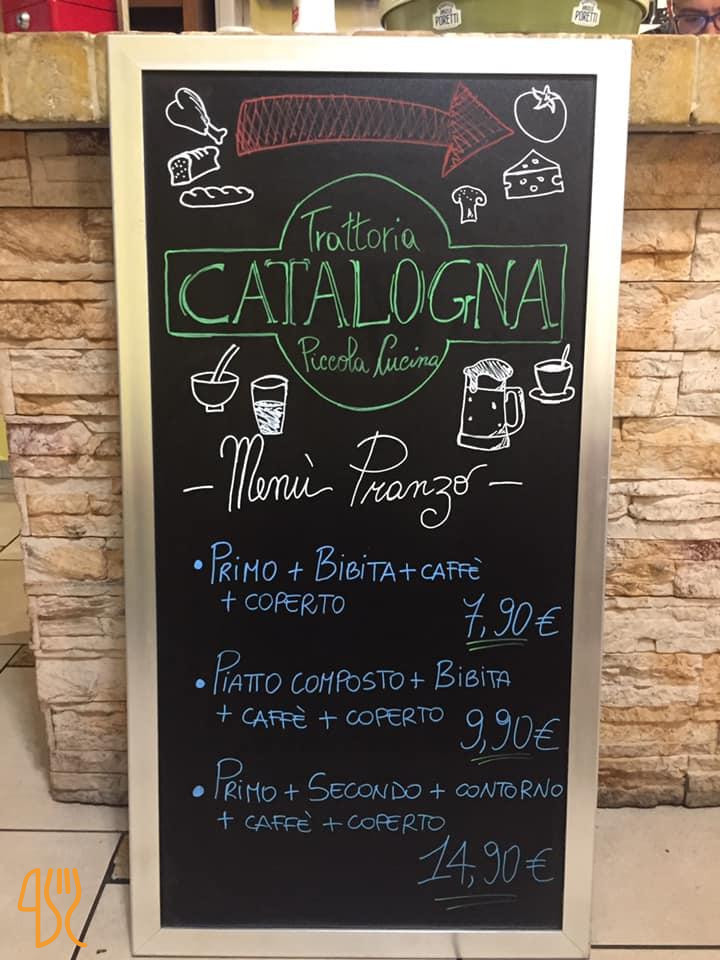 PORETTI
PORETTI
Trattoria
CATALOGNA
Piccola Cucina
- Menù Pranzo -
• PRIMO + BIBITA + CAFFÈ
+ COPERTO
7,90 €
• PIATTO COMPOSTO + BIBITA
+ CAFFÈ + COPERTO
9,90 €
• PRIMO + SECONDO + CONTORNO
+ CAFFÈ + COPERTO
14,90 €